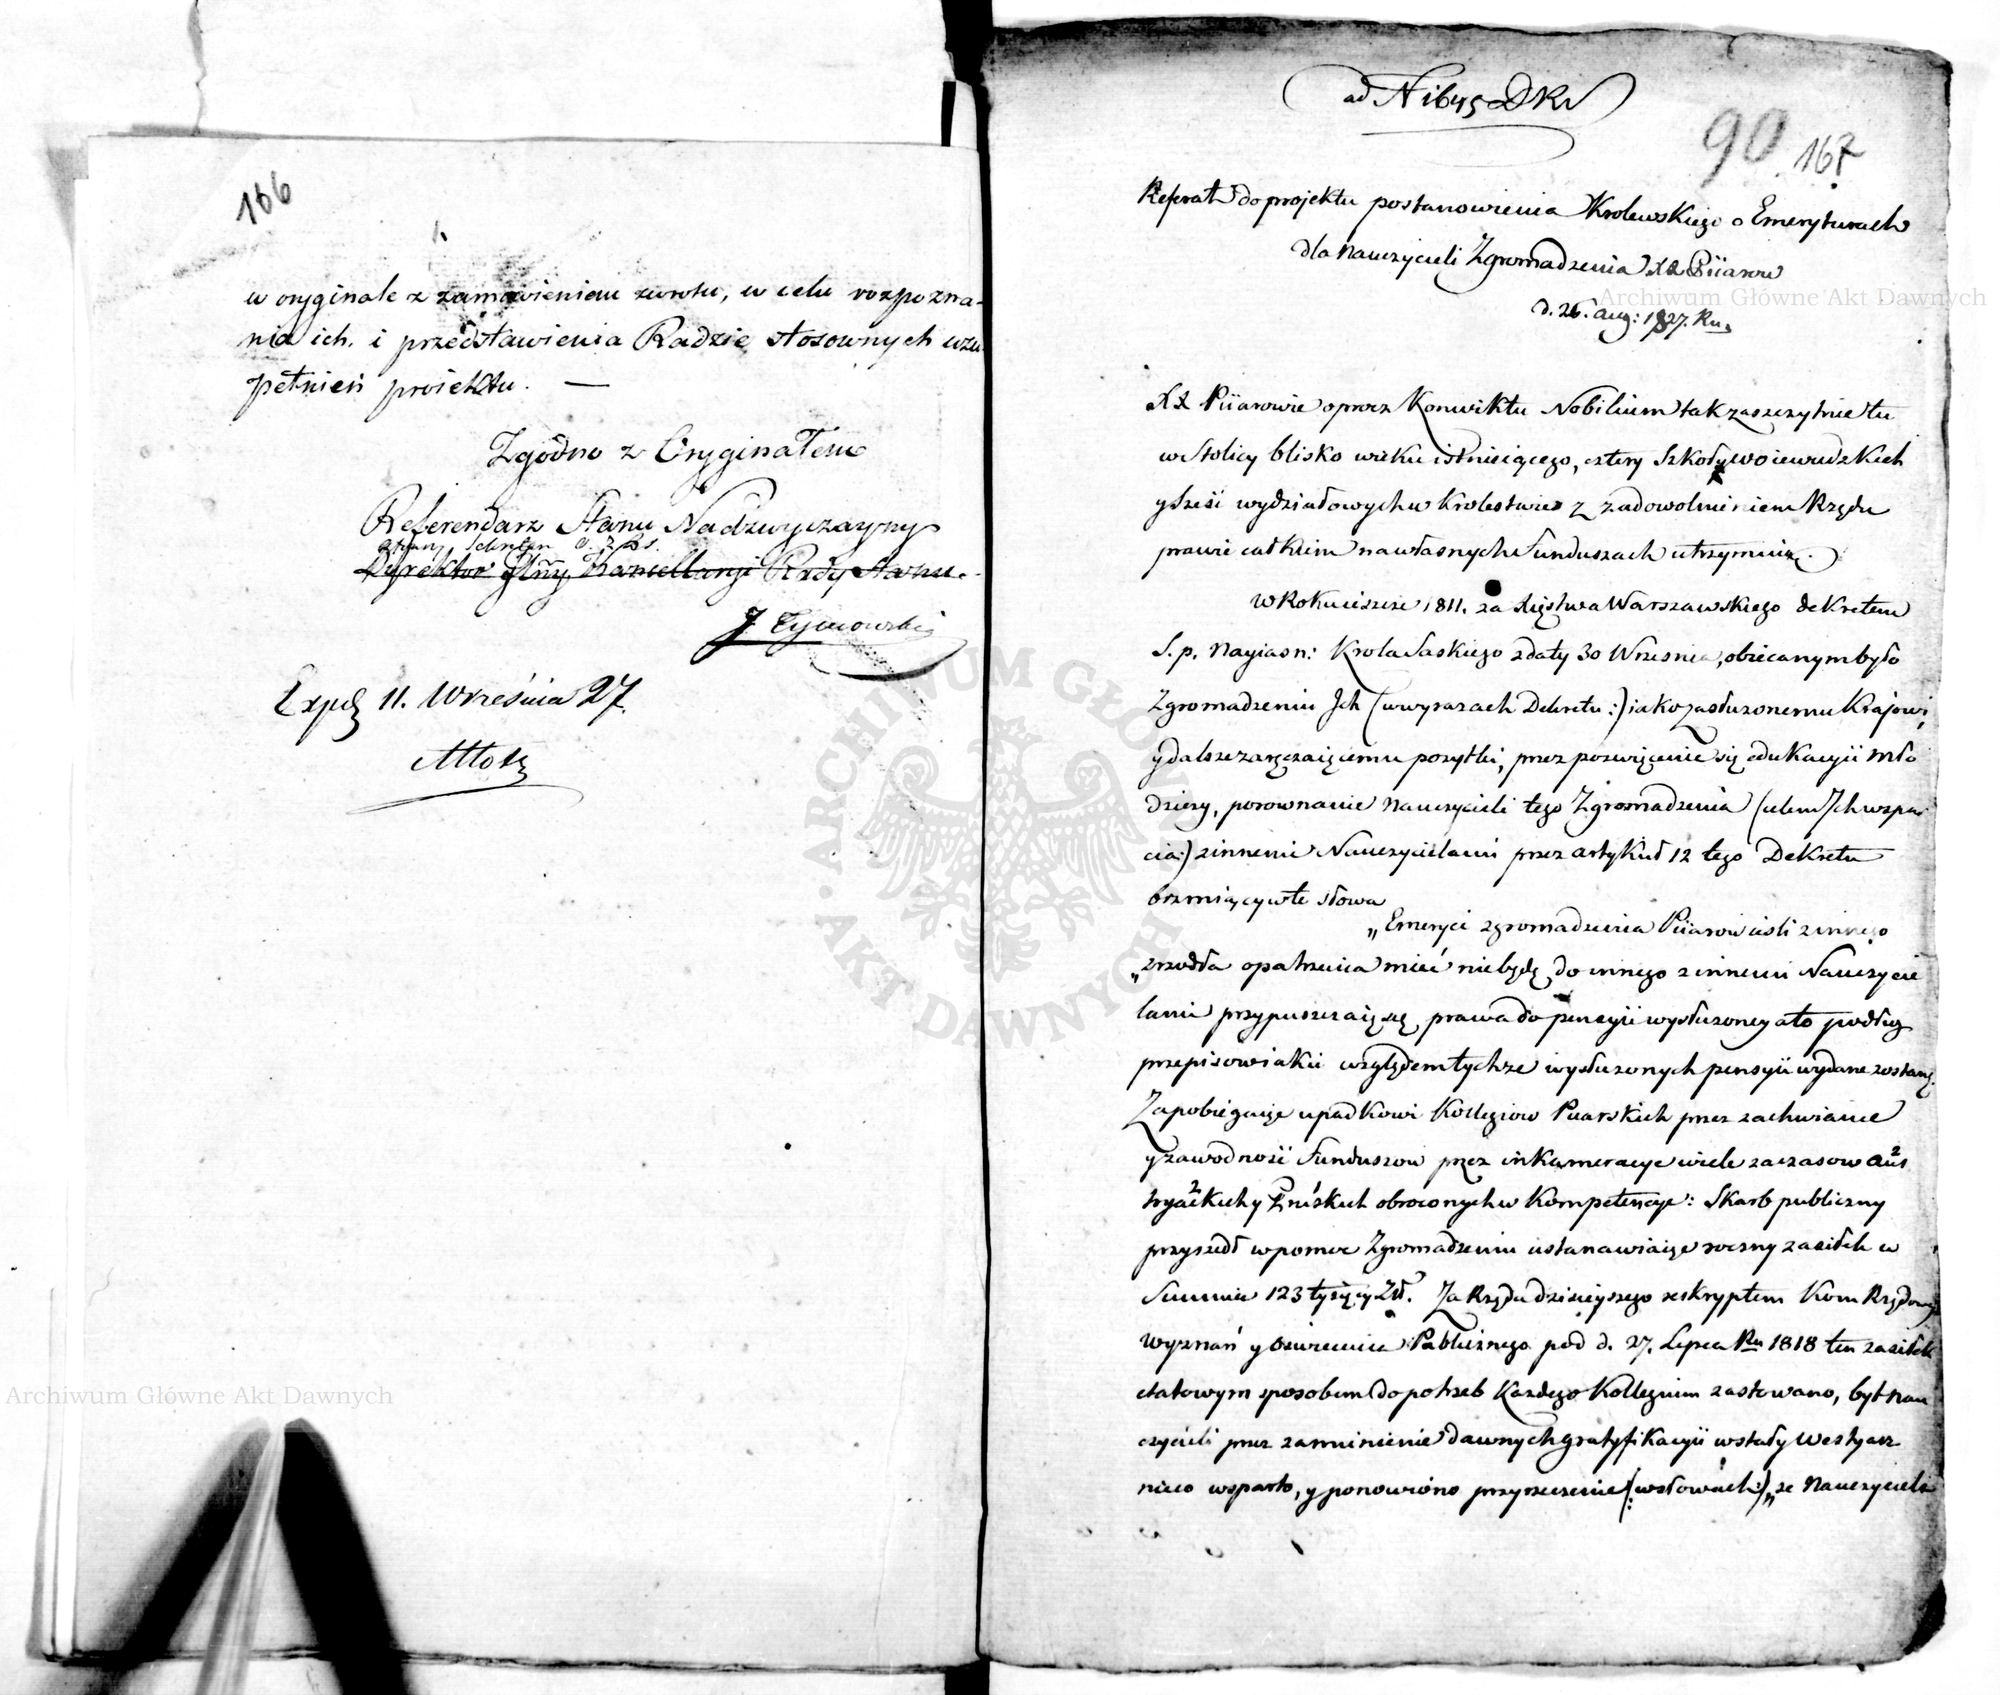 166
w oryginale z zamówieniem zwrotu, w celu rozpozna-
nia ich. i przedstawienia Radzie stosownych uzu
pełnień proiektu. —
Zgodno z Oryginałem
Referendarz Stanu Nadzwyczayny
Dyrektor Głny Kancellaryi Rady Stanu.
J. Tymowski
Exp 11. Września 27.
ad N 1645 DKr
90
167
Referat do projektu postanowienia Krolewskiego o Emeryturach
dla Nauczycieli Zgromadzenia XX Piiarow
d. 26. Aug: 1827. Ru.
XX Piiarowie oprocz Konwiktu Nobilium tak zaszczytnie tu
w Stolicy blisko wieku istnieiącego, cztery Szkoły woiewudzkich
y sześć wydziałowych w Krolestwie z zadowolnieniem Rządu
prawie całkiem na własnych funduszach utrzymuią.
W Roku ieszcze 1811. za Xięstwa Warszawskiego dekretem
S. p. Nayiasn: Krola Saskiego z daty 30 Wrzesnia, obiecanym było
Zgromadzeniu Ich (w wyrazach Dekretu:) iako zasłużonemu Kraiowi,
y dalsze zaręczaiącemu pożytki, przez poswięcenie się edukacyii mło
dzieży, porownanie Nauczycieli tego Zgromadzenia (celem Ich wspar
cia:) z innemi Nauczycielami przez artykuł 12 tego Dekretu
brzmiący w te słowa
„Emeryci zgromadzenia Piiarow iesli z innego
„zrzodła opatrzenia mieć nie będą, do innego z innemi Nauczycie
lami przypuszczaią się prawa do pensyii wysłużoney a to podług
przepisow iakie względem tychże wysłużonych pensyii wydane zostaną.
Zapobiegaiąc upadkowi Kollegiow Piiarskich przez zachwianie
y zawodność funduszow przez inkameracye wiele za czasow Aus
tryackich y Pruskich obroconych w Kompetencye: Skarb publiczny
przyszedł w pomoc Zgromadzeniu ustanawiaiąc roczny zasiłek w
Summie 123 tysięcy Zł. Za Rządu dzisieyszego reskryptem Kom Rządowey
Wyznań y Oswiecenia Publicznego pod d. 27. Lipca Ru 1818 ten zasiłek
etatowym sposobem do potrzeb Każdego Kollegium zastowano, byt nau
czycieli przez zamienienie dawnych gratyfikacyii w stały westyarz
nieco wsparto, y ponowiono przyrzeczenie (:w słowach:) „że Nauczyciele
ARCHIWUM GŁÓWNE AKT DAWNYCH
Archiwum Główne Akt Dawnych
Archiwum Główne Akt Dawnych